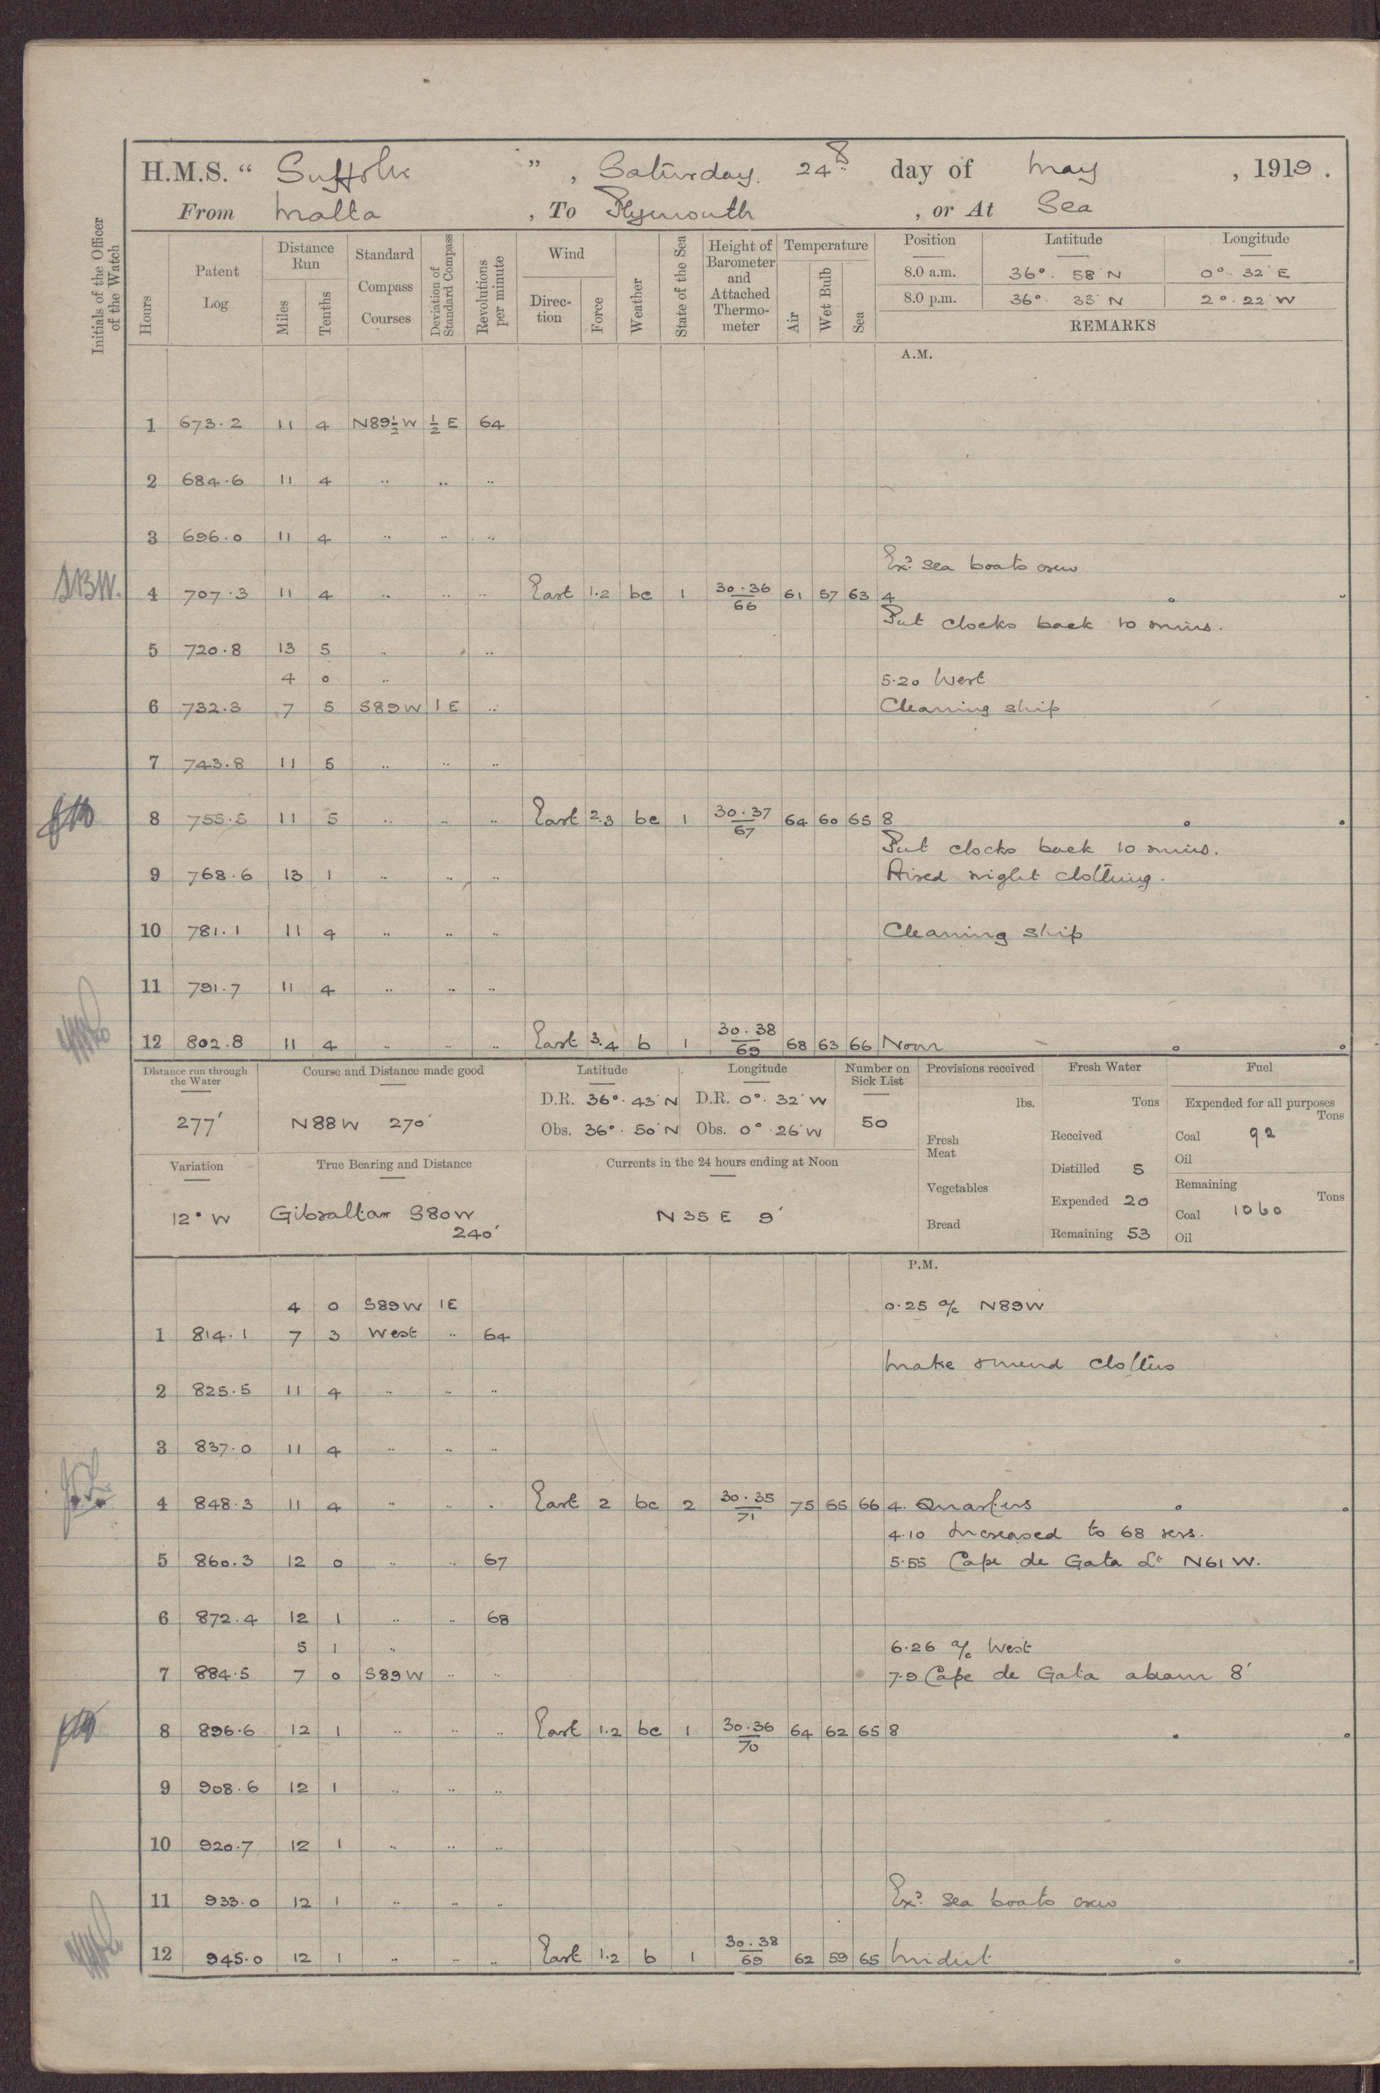 H.M.S. “ Suffolk ” , Saturday. 24th day of May , 1919 .
From Malta , To Plymouth , or At Sea
Initials of the Officer of the Watch
Hours
Patent Log
Distance Run
Miles
Tenths
Standard Compass Courses
Deviation of Standard Compass
Revolutions per minute
Wind
Direc-tion
Force
Weather
State of the Sea
Height of Barometer and Attached Thermo-meter
Temperature
Air
Wet Bulb
Sea
Position Latitude Longitude
8.0 a.m. 36° . 58 N 0° . 32' E
8.0 p.m. 36° . 35' N 2° . 22' W
REMARKS
A.M.
1 673.2 11 4 N89½W ½ E 64
2 684.6 11 4 .. .. ..
3 696.0 11 4 .. .. ..
Exd. sea boats crew
4 707.3 11 4 .. .. .. East 1.2 bc 1 30.36/66 61 57 63 4
Put clocks back 10 mins.
5 720.8 13 5 .. ..
4 0 .. 5.20 West
6 732.3 7 5 S89W 1E .. Cleaning ship
7 743.8 11 5 .. .. ..
8 755.5 11 5 .. .. .. East 2.3 bc 1 30.37/67 64 60 65 8
Put clocks back 10 mins.
9 768.6 13 1 .. .. .. Aired night clothing.
10 781.1 11 4 .. .. .. Cleaning ship
11 791.7 11 4 .. .. ..
12 802.8 11 4 .. .. .. East 3.4 b 1 30.38/69 68 63 66 Noon
Distance run through the Water
277'
Course and Distance made good
N88W 270'
Latitude Longitude
D.R. 36° . 43' N D.R. 0° . 32' W
Obs. 36° . 50' N Obs. 0° . 26' W
Number on Sick List
50
Provisions received
lbs.
Fresh Meat
Vegetables
Bread
Fresh Water
Tons
Received
Distilled 5
Expended 20
Remaining 53
Fuel
Expended for all purposes
Tons
Coal 92
Oil
Remaining
Tons
Coal 1060
Oil
Variation
12° W
True Bearing and Distance
Gibraltar S80W
240'
Currents in the 24 hours ending at Noon
N35E 9'
P.M.
4 0 S89W 1E 0.25 a/c N89W
1 814.1 7 3 West .. 64
Make & mend clothes
2 825.5 11 4 .. .. ..
3 837.0 11 4 .. .. ..
4 848.3 11 4 .. .. . East 2 bc 2 30.35/71 75 65 66 4. Quarters
4.10 Increased to 68 revs.
5 860.3 12 0 .. .. 67 5.55 Cape de Gata Lt N61W.
6 872.4 12 1 .. .. 68
5 1 .. 6.26 a/c West
7 884.5 7 0 S89W .. .. 7.9 Cape de Gata abeam 8'
8 896.6 12 1 .. .. .. East 1.2 bc 1 30.36/70 64 62 65 8
9 908.6 12 1 .. .. ..
10 920.7 12 1 .. .. ..
11 933.0 12 1 .. .. .. Exd. sea boats crew
12 945.0 12 1 .. .. .. East 1.2 b 1 30.38/69 62 59 65 Midnt.